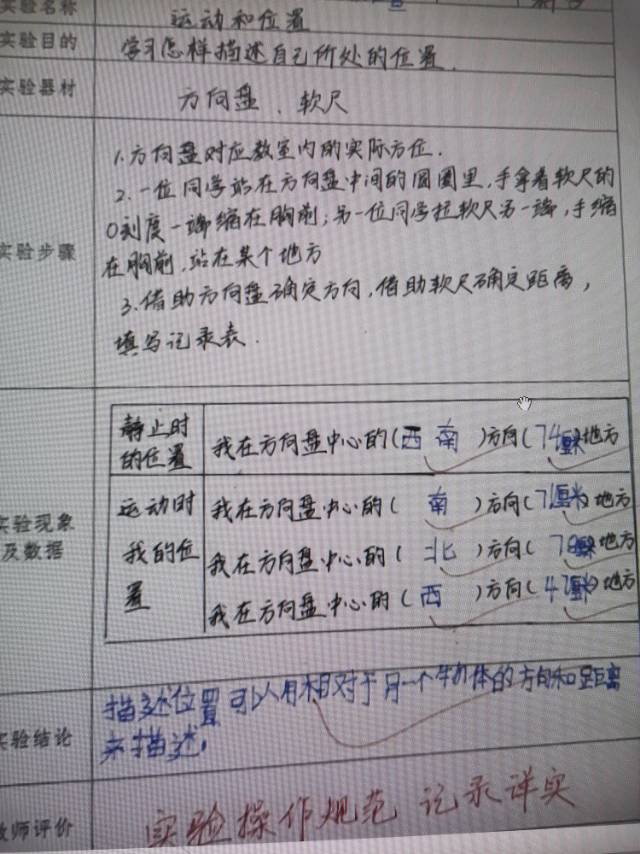 实验名称 运动和位置
实验目的 学习怎样描述自己所处的位置.
实验器材 方向盘、软尺
实验步骤
1.方向盘对应教室内的实际方位.
2.一位同学站在方向盘中间的圆圈里,手拿着软尺的
0刻度一端缩在胸前;另一位同学拉软尺另一端,手缩
在胸前,站在某个地方
3.借助方向盘确定方向,借助软尺确定距离,
填写记录表.
实验现象
及数据
静止时
的位置
我在方向盘中心的(西南)方向(74厘米)地方
运动时
我的位
置
我在方向盘中心的(南)方向(71厘米)地方
我在方向盘中心的(北)方向(78厘米)地方
我在方向盘中心的(西)方向(47厘米)地方
实验结论
描述位置可以用相对于另一个物体的方向和距离
来描述。
教师评价 实验操作规范 记录详实